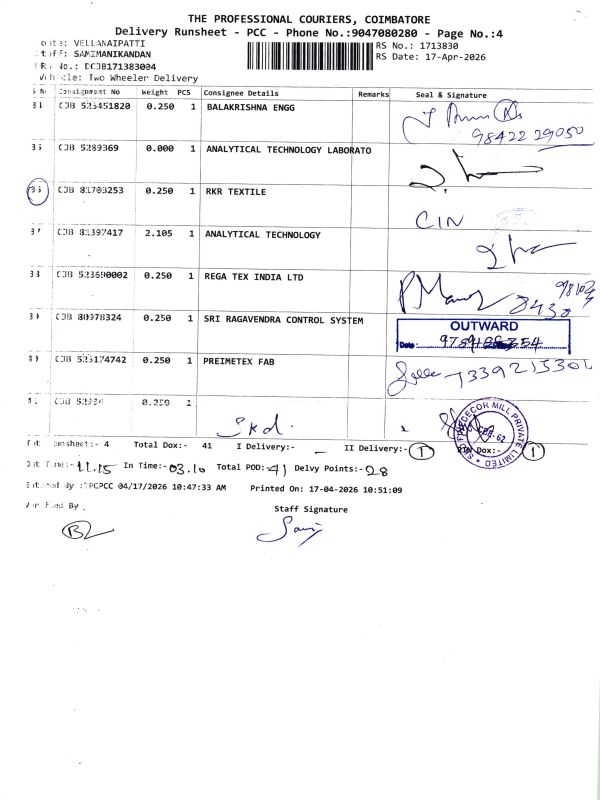 THE PROFESSIONAL COURIERS, COIMBATORE
Delivery Runsheet - PCC - Phone No.:9047080280 - Page No.:4
VELLANAIPATTI
RS No.: 1713830
SAMIMANIKANDAN
RS Date: 17-Apr-2026
No.: DCJB171383004
Two Wheeler Delivery
Consignment No Weight PCS Consignee Details Remarks Seal & Signature
CJB 523451820 0.250 1 BALAKRISHNA ENGG
98422 29050
CJB 5289369 0.000 1 ANALYTICAL TECHNOLOGY LABORATO
CJB 81703253 0.250 1 RKR TEXTILE
CIN
CJB 81397417 2.105 1 ANALYTICAL TECHNOLOGY
CJB 523690002 0.250 1 REGA TEX INDIA LTD
CJB 80978324 0.250 1 SRI RAGAVENDRA CONTROL SYSTEM
OUTWARD
Date:
CJB 523174742 0.250 1 PREIMETEX FAB
7339215301
CJB 0.250 1
DECOR MILL PRIVATE LIMITED
4 Total Dox:- 41 I Delivery:- - II Delivery:- 1 Dox:- 1
11.15 In Time:- 03.10 Total POD:- 41 Delvy Points:- 28
By :TPCPCC 04/17/2026 10:47:33 AM Printed On: 17-04-2026 10:51:09
By. Staff Signature